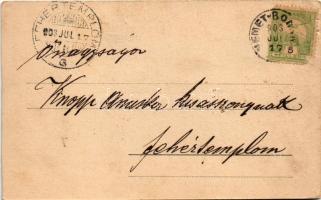 FEHÉRTEMPLOM
903 JUL 17
G
NÉMET-BOG
903
JUL
17 5
Őnagysága
Knopp Anuska kisasszonynak
fehértemplom